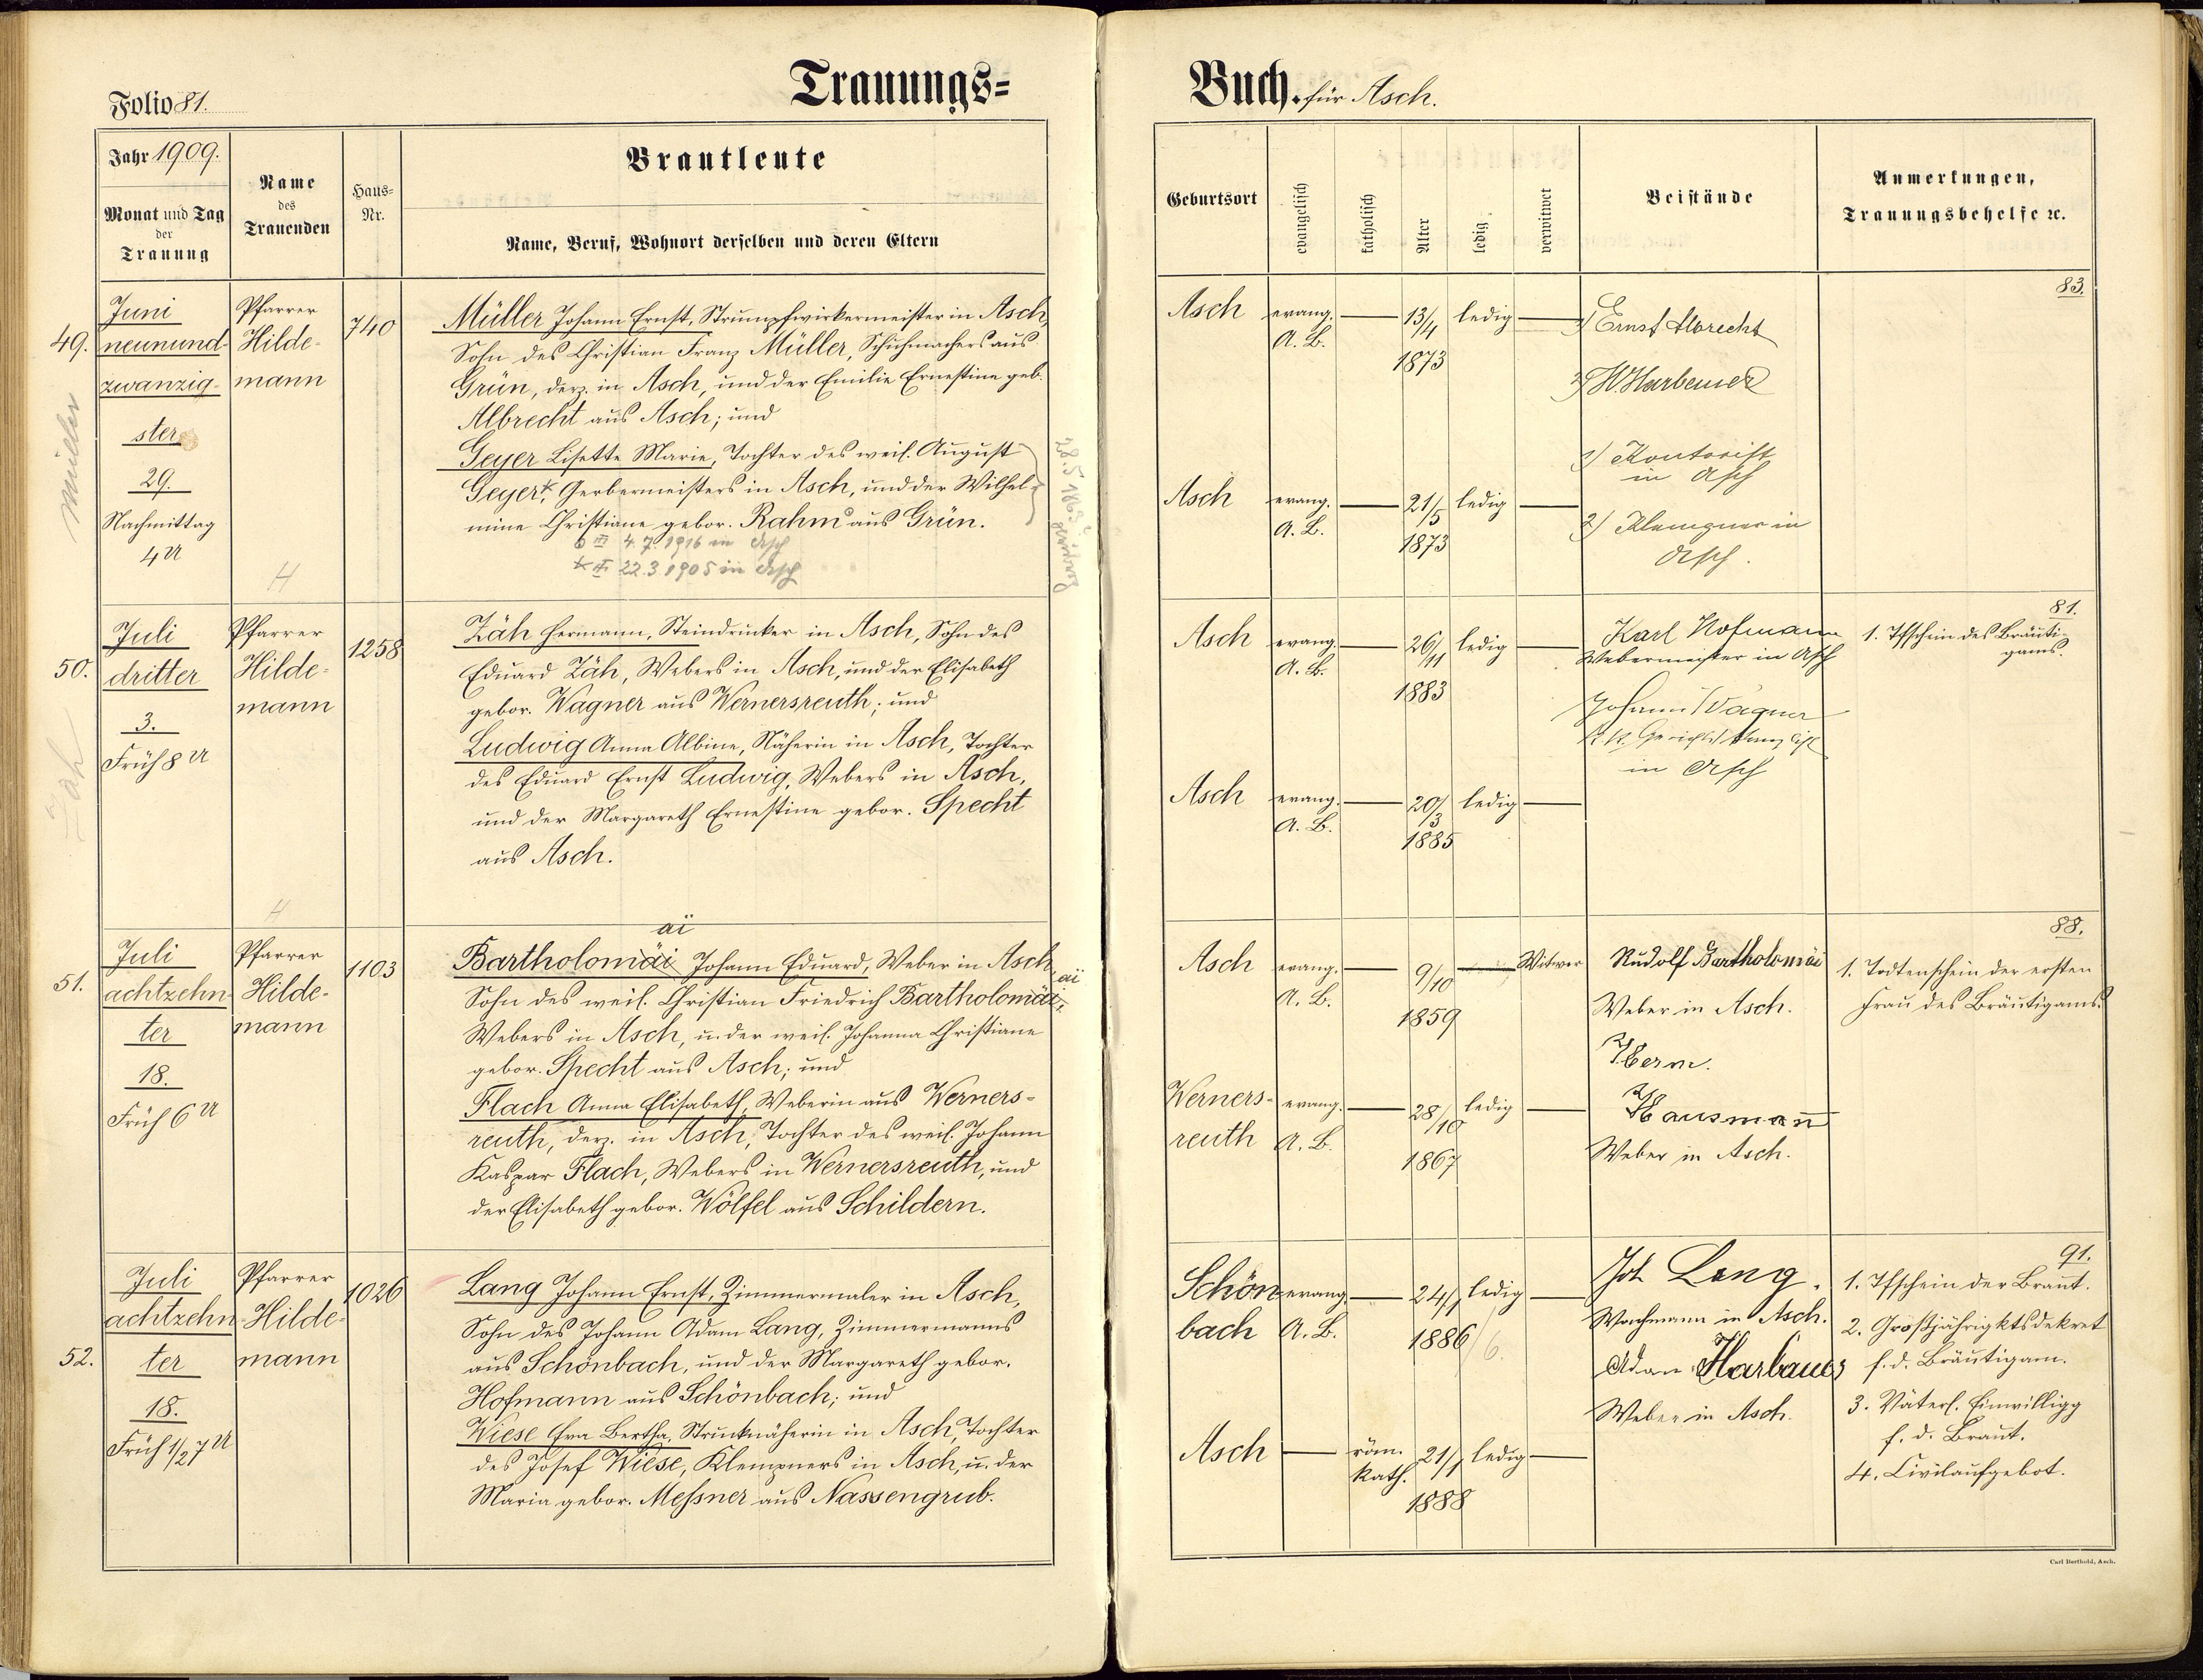 Folio 81.
Trauungs=
Jahr 1909.
Monat und Tag
der
Trauung
Name
des
Trauenden
Haus=
Nr.
Brautleute
Name, Beruf, Wohnort derselben und deren Eltern
49.
Müller
Juni
neunund-
zwanzig-
ster
29.
Nachmittag
4 U
Pfarrer
Hilde-
mann
H
740
Müller Johann Ernst, Strumpfwirkermeister in Asch,
Sohn des Christian Franz Müller, Schuhmachers aus
Grün, derz. in Asch, und der Emilie Ernestine geb.
Albrecht aus Asch; und
Geyer Lisette Marie, Tochter des weil. August
Geyer, Gerbermeisters in Asch, und der Wilhel-
mine Christiane gebor. Rahm aus Grün.
4.7.1916 in Asch
22.3.1905 in Asch
50.
Zäh
Juli
dritter
3.
Früh 8 U
Pfarrer
Hilde-
mann
H
1258
Zäh Hermann, Steindrucker in Asch, Sohn des
Eduard Zäh, Webers in Asch, und der Elisabeth
gebor. Wagner aus Wernersreuth; und
Ludwig Anna Albine, Näherin in Asch, Tochter
des Eduard Ernst Ludwig, Webers in Asch,
und der Margareth Ernestine gebor. Specht
aus Asch.
51.
Juli
achtzehn-
ter
18.
Früh 6 U
Pfarrer
Hilde-
mann
1103
ai
Bartholomäi Johann Eduard, Weber in Asch,
ai
Sohn des weil. Christian Friedrich Bartholomäi,
Webers in Asch, u. der weil. Johanna Christiane
gebor. Specht aus Asch; und
Flach Anna Elisabeth, Weberin aus Werners-
reuth, derz. in Asch, Tochter des weil. Johann
Kaspar Flach, Webers in Wernersreuth, und
der Elisabeth gebor. Wölfel aus Schildern.
52.
Juli
achtzehn-
ter
18.
Früh 1/2 7 U
Pfarrer
Hilde-
mann
1026
Lang Johann Ernst, Zimmermaler in Asch,
Sohn des Johann Adam Lang, Zimmermanns
aus Schönbach, und der Margareth gebor.
Hofmann aus Schönbach; und
Wiese Eva Bertha, Strucknäherin in Asch, Tochter
des Josef Wiese, Klempners in Asch, u. der
Maria gebor. Meßner aus Nassengrub.
Buch. für Asch.
Geburtsort
evangelisch
katholisch
Alter
ledig
verwitwet
Beistände
Anmerkungen,
Trauungsbehelfe ꝛc.
83.
Asch
evang.
A. B.
13/4
1873
ledig
1) Ernst Albrecht
2)
1) Kontorist
in Asch
2) Klempner in
Asch.
Asch
evang.
A. B.
21/5
1873
ledig
81.
Asch
evang.
A. B.
26/11
1883
ledig
Karl Hofmann
Webermeister in Asch
Johann Wagner
k. k. Gerichtskanzlist
in Asch
1. Tfschein des Bräuti-
gams.
Asch
evang.
A. B.
20/3
1885
ledig
88.
Asch
evang.
A. B.
9/10
1859
Witwer
Rudolf Bartholomäi
Weber in Asch.
Herm.
Hausmann
Weber in Asch.
1. Todtenschein der ersten
Frau des Bräutigams.
Werners-
reuth
evang.
A. B.
28/10
1867
ledig
91.
Schön
bach
evang.
A. B.
24/1
1886
6.
ledig
Joh Lang.
Wachmann in Asch.
Adam Harbauer
Weber in Asch.
1. Tfschein der Braut.
2. Großjährigktsdekret
f. d. Bräutigam.
3. Väterl. Einwilligg
f. d. Braut.
4. Civilaufgebot.
Asch
röm.
kath.
21/1
1888
ledig
Carl Berthold, Asch.